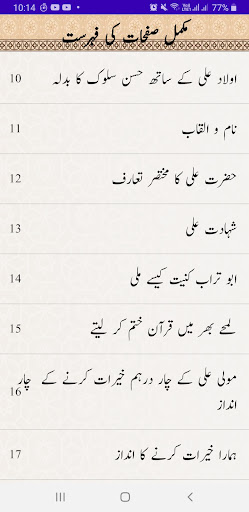 10:14 77%
مکمل صفحات کی فہرست
اولاد علی کے ساتھ حسن سلوک کا بدلہ 10
نام و القاب 11
حضرت علی کا مختصر تعارف 12
شہادت علی 13
ابو تراب کنیت کیسے ملی 14
لمحے بھر میں قرآن ختم کر لیتے 15
مولی علی کے چار درہم خیرات کرنے کے چار
انداز 16
ہمارا خیرات کرنے کا انداز 17